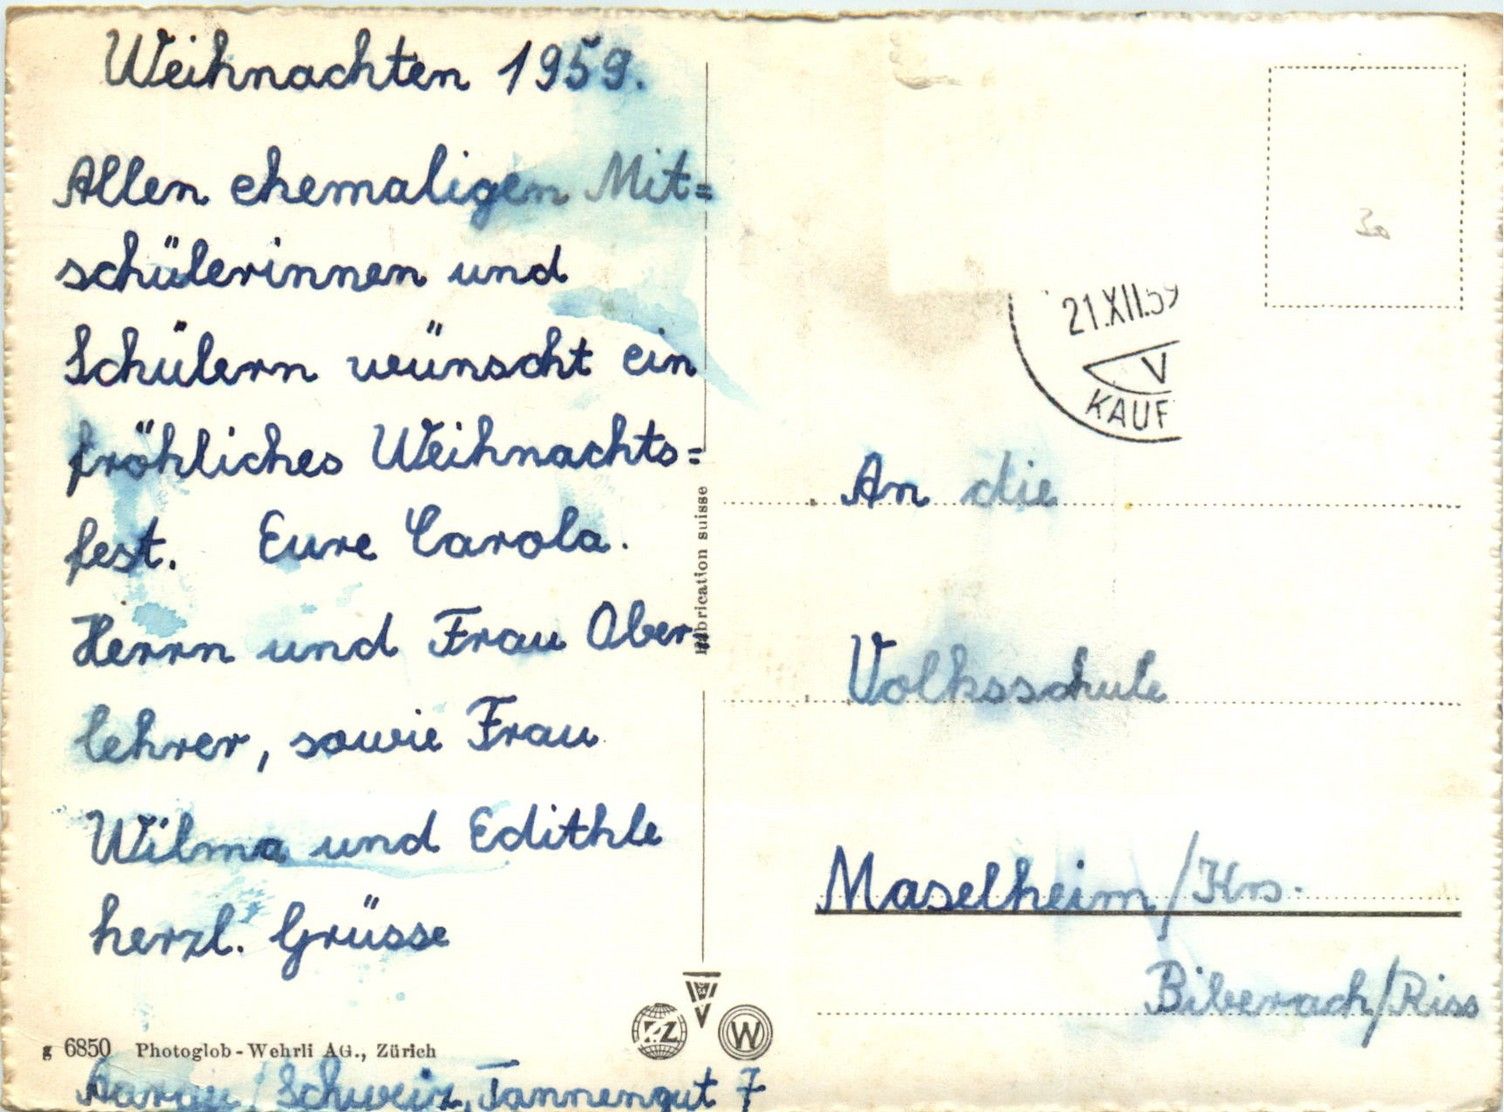 Weihnachten 1959.
Allen ehemaligen Mit=
schülerinnen und
Schülern wünscht ein
fröhliches Weihnachts=
fest. Eure Carola.
Herrn und Frau Ober=
lehrer, sowie Frau
Wilma und Edithle
herzl. Grüsse
g 6850 Photoglob-Wehrli AG., Zürich
Aarau/Schweiz, Tannengut 7
Fabrication suisse
Z
W
30
21.XII.59
V
KAUF
An die
Volksschule
Maselheim/Krs.
Biberach/Riss